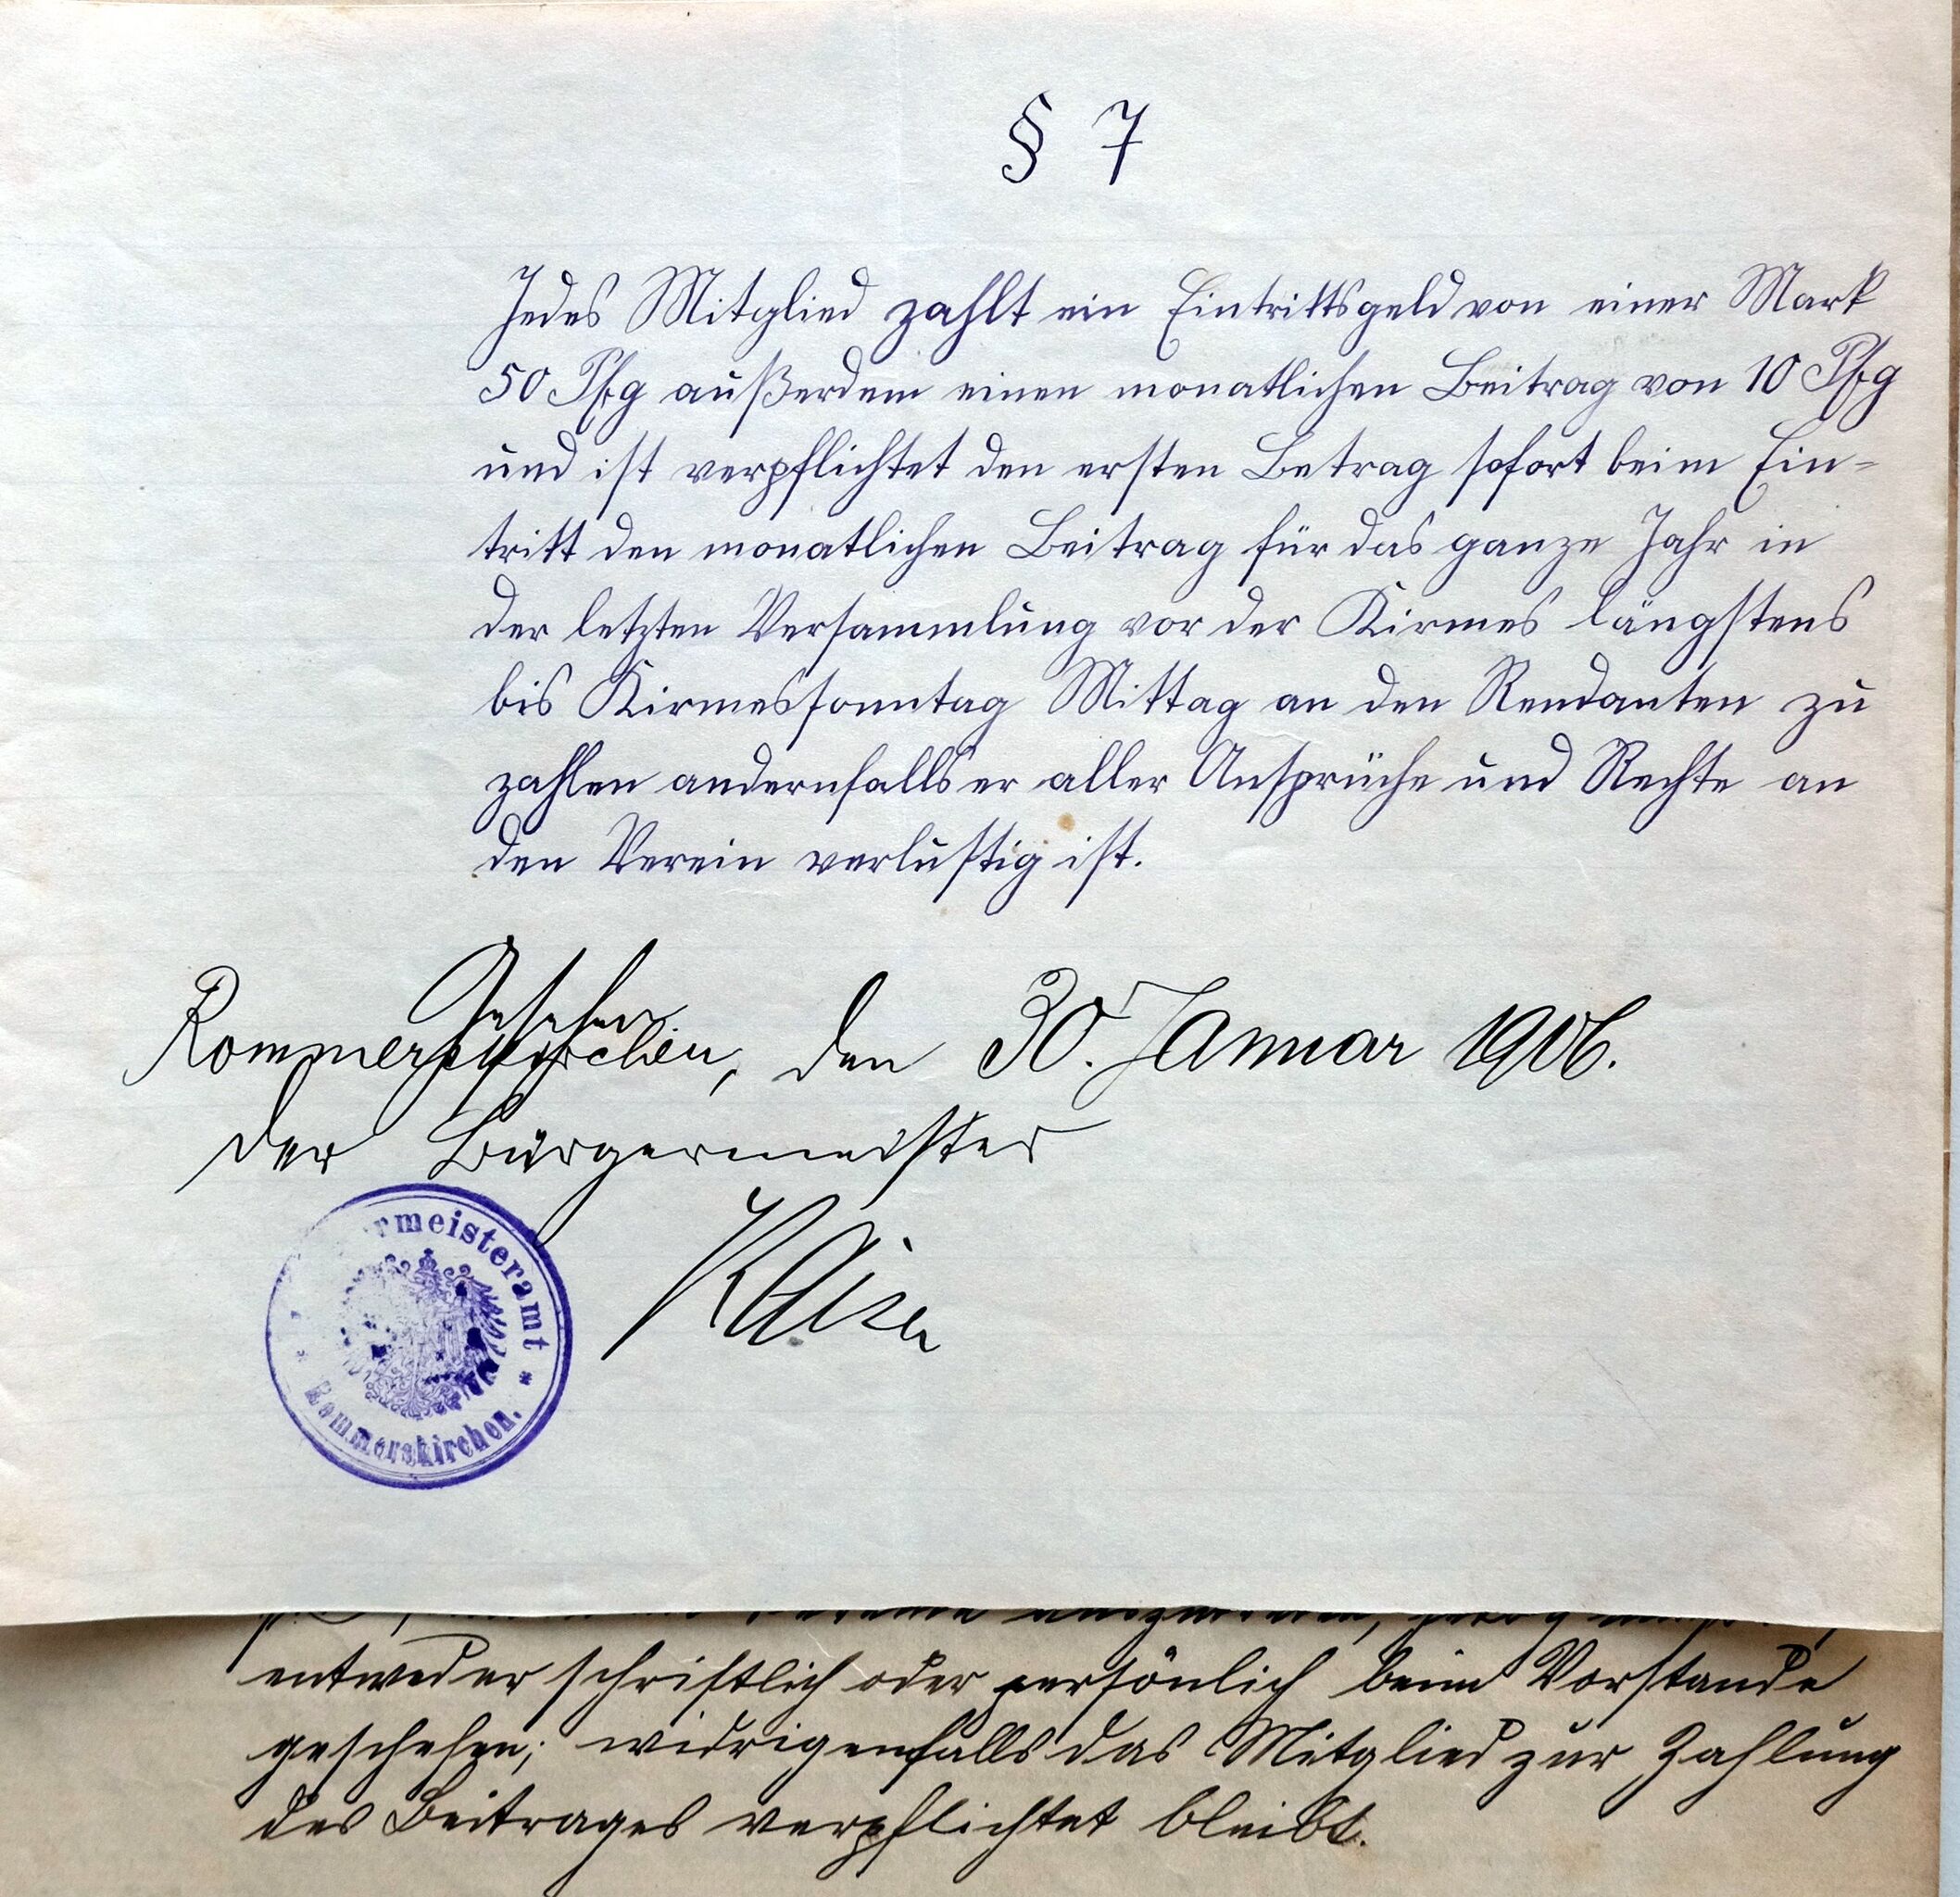 § 7
Jedes Mitglied zahlt ein Eintrittsgeld von einer Mark
50 Pfg außerdem einen monatlichen Beitrag von 10 Pfg
und ist verpflichtet den ersten Betrag sofort beim Ein=
tritt den monatlichen Beitrag für das ganze Jahr in
der letzten Versammlung vor der Kirmes längstens
bis Kirmessonntag Mittag an den Rendanten zu
zahlen andernfalls er aller Ansprüche und Rechte an
den Verein verlustig ist.
Gesehen.
Rommerskirchen, den 30. Januar 1906.
Der Bürgermeister
rmeisteramt * Rommerskirchen.
entweder schriftlich oder persönlich beim Vorstande
geschehen; widrigenfalls das Mitglied zur Zahlung
des Beitrages verpflichtet bleibt.